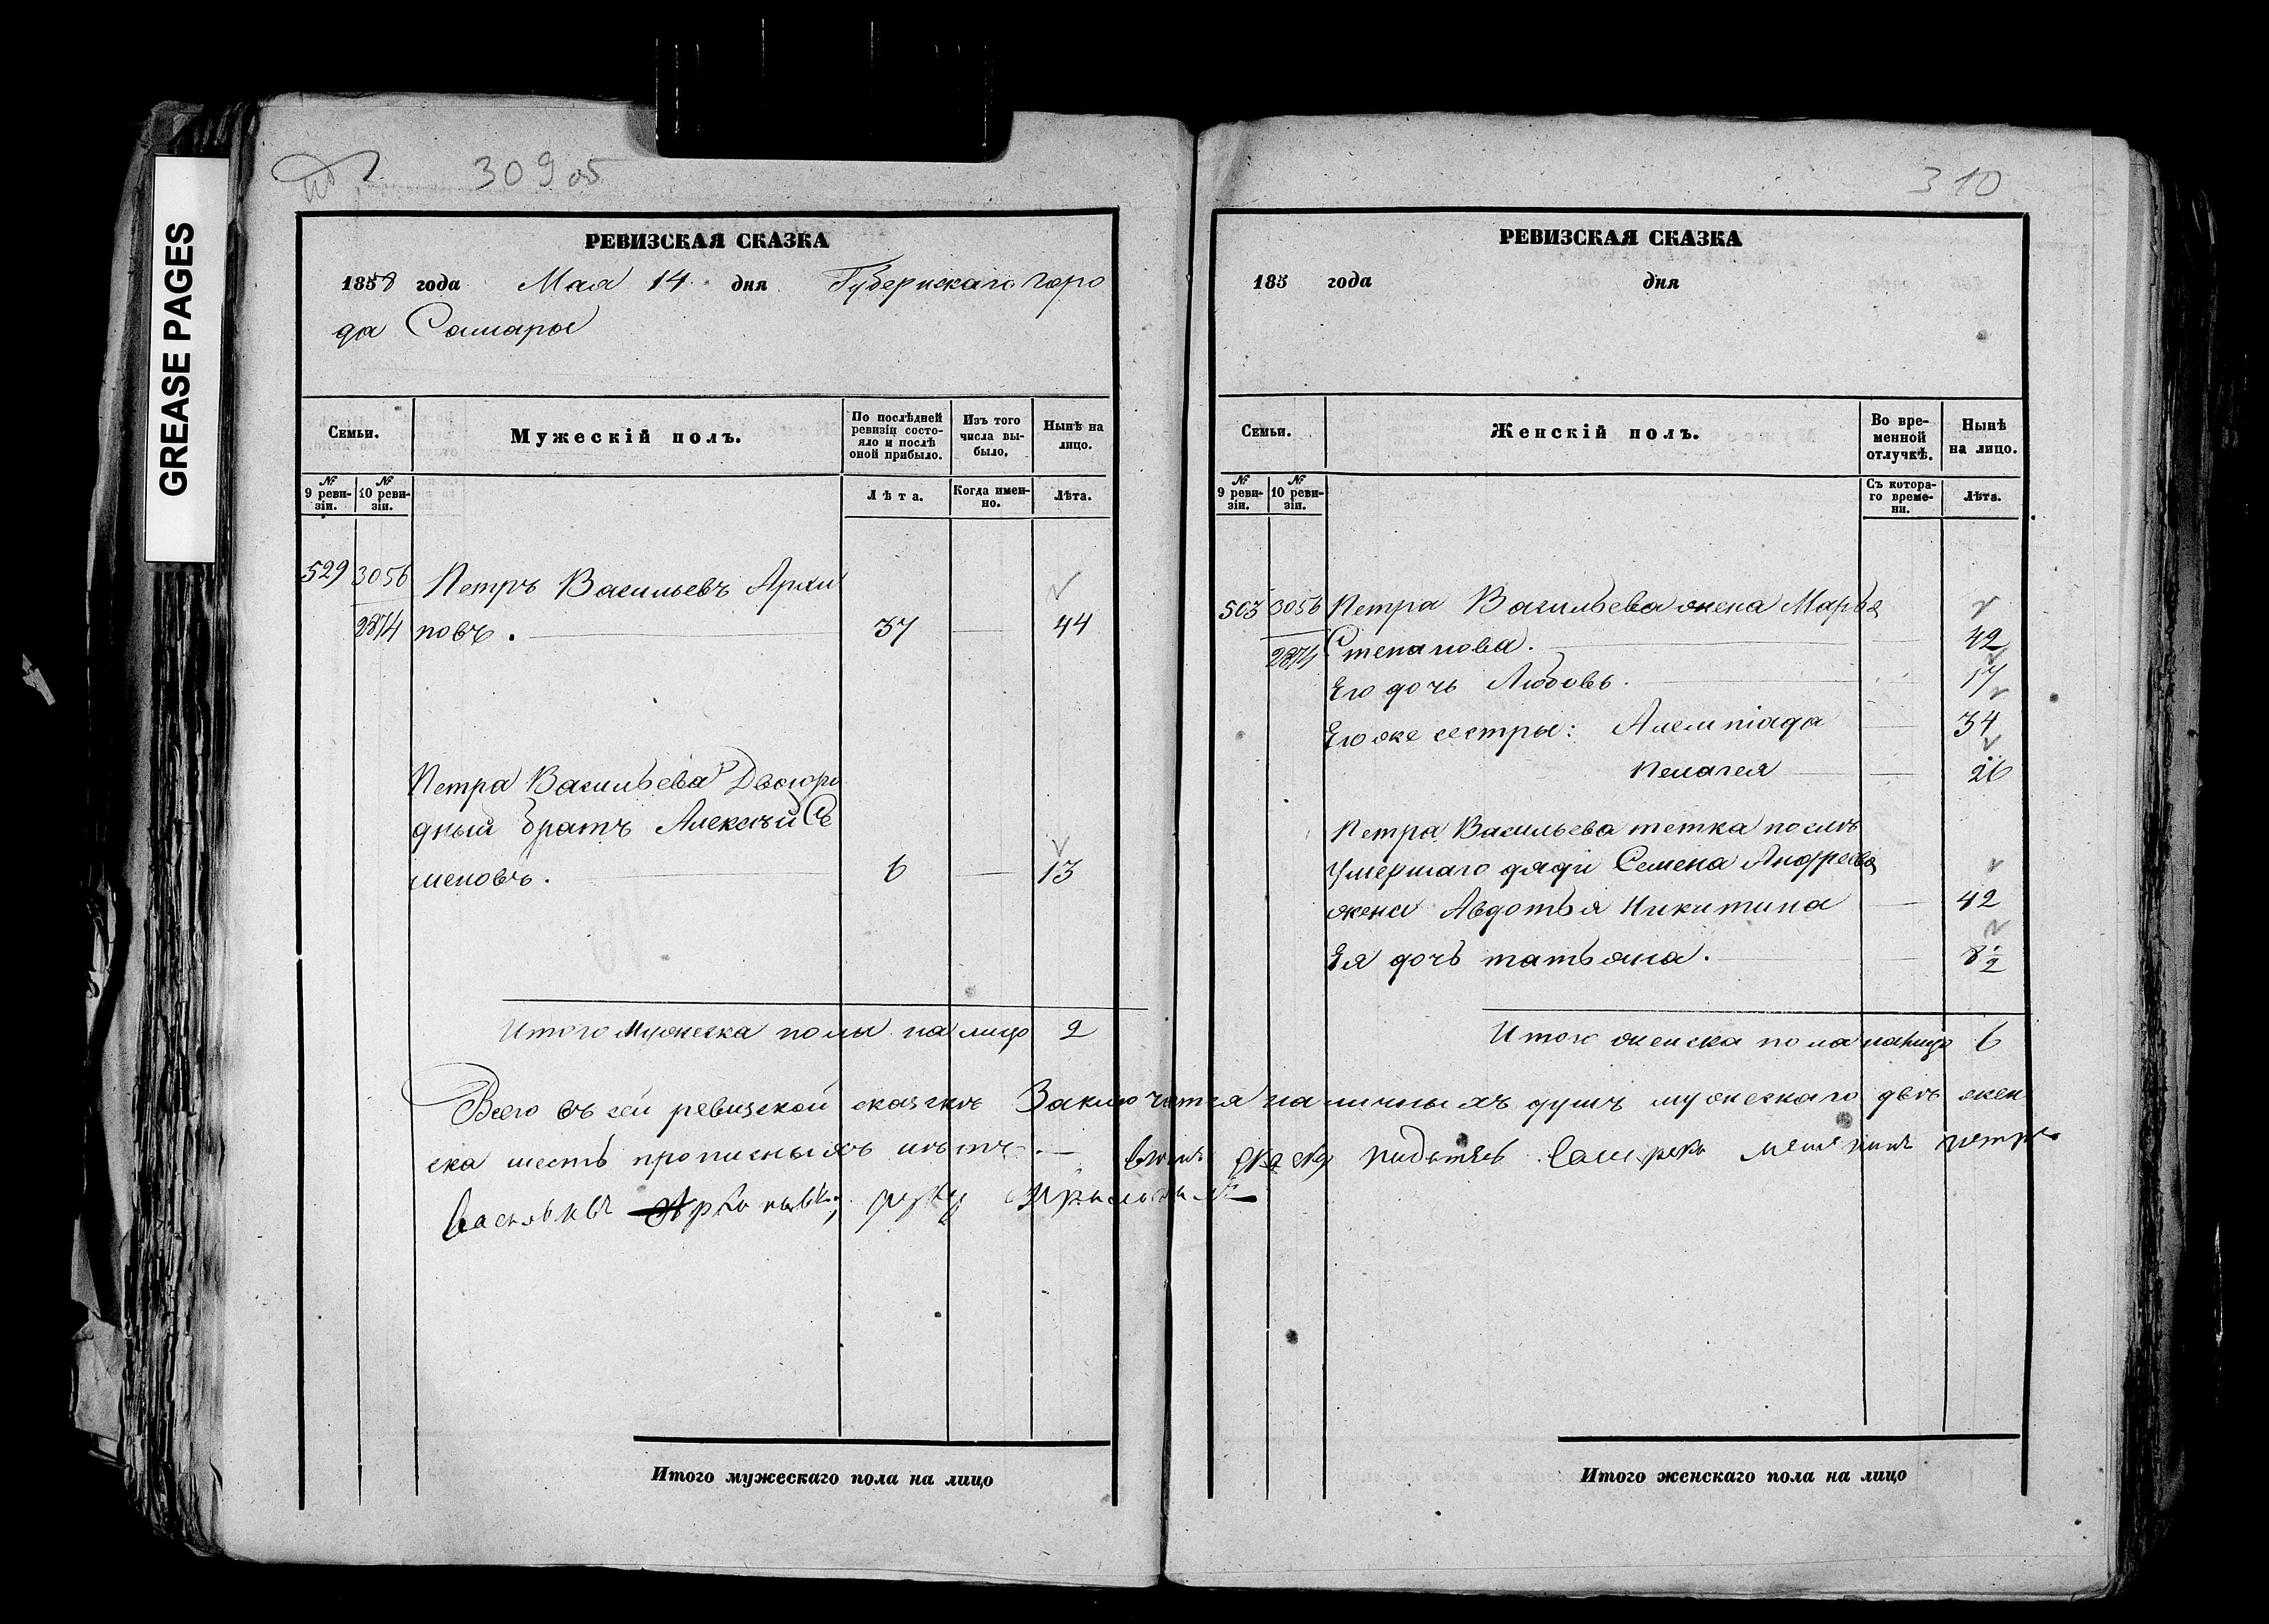 GREASE PAGES
309 об
РЕВИЗСКАЯ СКАЗКА
1858 года Мая 14 дня Губернскаго горо
да Самары
Семьи.
Мужескій полъ.
По послѣдней ревизіи состо-
яло и послѣ
оной прибыло.
Изъ того
числа вы-
было.
Нынѣ на
лицо.
№ 9 реви-
зіи.
№ 10 реви-
зіи.
Лѣта.
Когда имен-
но.
Лѣта.
529 3056 Петръ Васильевъ Архи
2874 повъ. 37 — 44
Петра Васильева Двоюро
дный братъ Алексѣй Се
меновъ. 6 — 13
Итого мужеска пола на лицо 2
310
РЕВИЗСКАЯ СКАЗКА
185 года дня
Семьи.
Женскій полъ.
Во вре-
менной
отлучкѣ.
Нынѣ
на лицо.
№ 9 реви-
зіи.
№ 10 реви-
зіи.
Съ котора-
го време-
ни.
Лѣта.
503 3056 Петра Васильева жена Марья
2874 Степанова. — 42
Его дочь Любовь. 17
Его же сестры: Алемпіада — 34
Пелагея — 26
Петра Васильева тетка послѣ
умершаго дяди Семена Андреева
жена Авдотья Никитина — 42
Ея дочь татьяна. — 8½
Итого женска пола налицо 6
Всего въ сей ревизской сказкѣ Заключатся наличныхъ душъ мужескаго двѣ жен
ска шесть прописныхъ нѣтъ. —
руку
Итого мужескаго пола на лицо
Итого женскаго пола на лицо